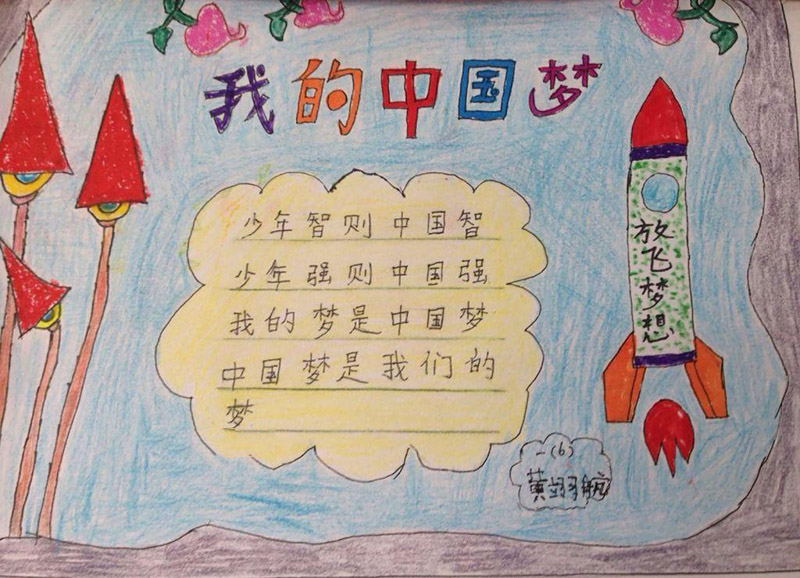 我的中国梦
少年智则中国智
少年强则中国强
我的梦是中国梦
中国梦是我们的
梦
放飞梦想
一(6)
黄翊航